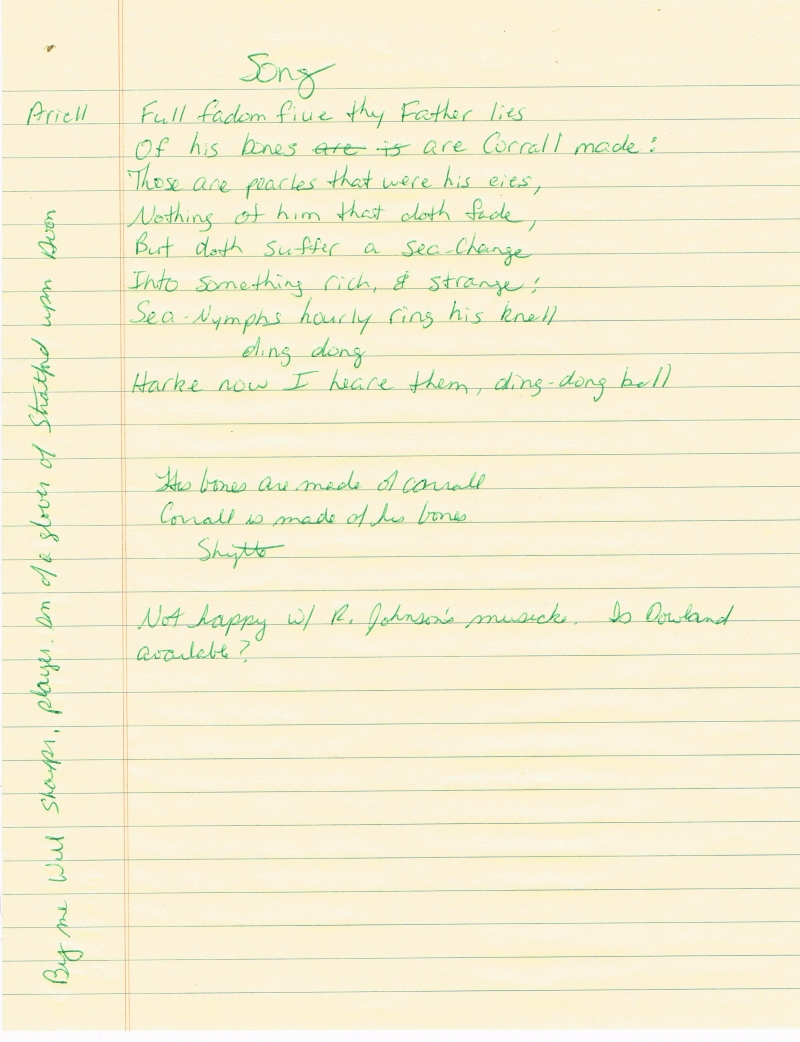 Song
Ariell
Full fadom fiue thy Father lies
Of his bones are is are Corrall made:
Those are pearles that were his eies,
Nothing of him that doth fade,
But doth suffer a sea-Change
Into something rich, & strange:
Sea-Nymphs hourly ring his knell
ding dong
Harke now I heare them, ding-dong bell
His bones are made of corrall
Corrall is made of his bones
Shytte
Not happy w/ R. Johnson's musick. Is Dowland
available?
By me Will Shaxpr, player. Son of a glover of Stratford upon Avon